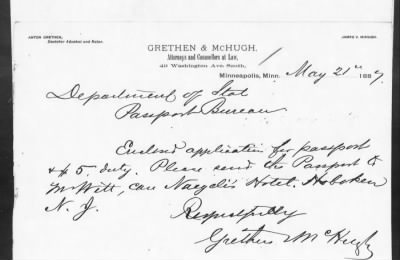 ANTON GRETHEN,
JAMES V. McHUGH.
GRETHEN & McHUGH,
Attorneys and Counsellors at Law,
Washington Ave. South,
Minneapolis, Minn. May 21st 1887.
Department of Stat
Passport Bureau
Enclosed application for passport
& $5. duty. Please send the Passport to
Witt, care Naegeli's Hotel. Hoboken
N. J.
Respectfully
Grethen & McHugh